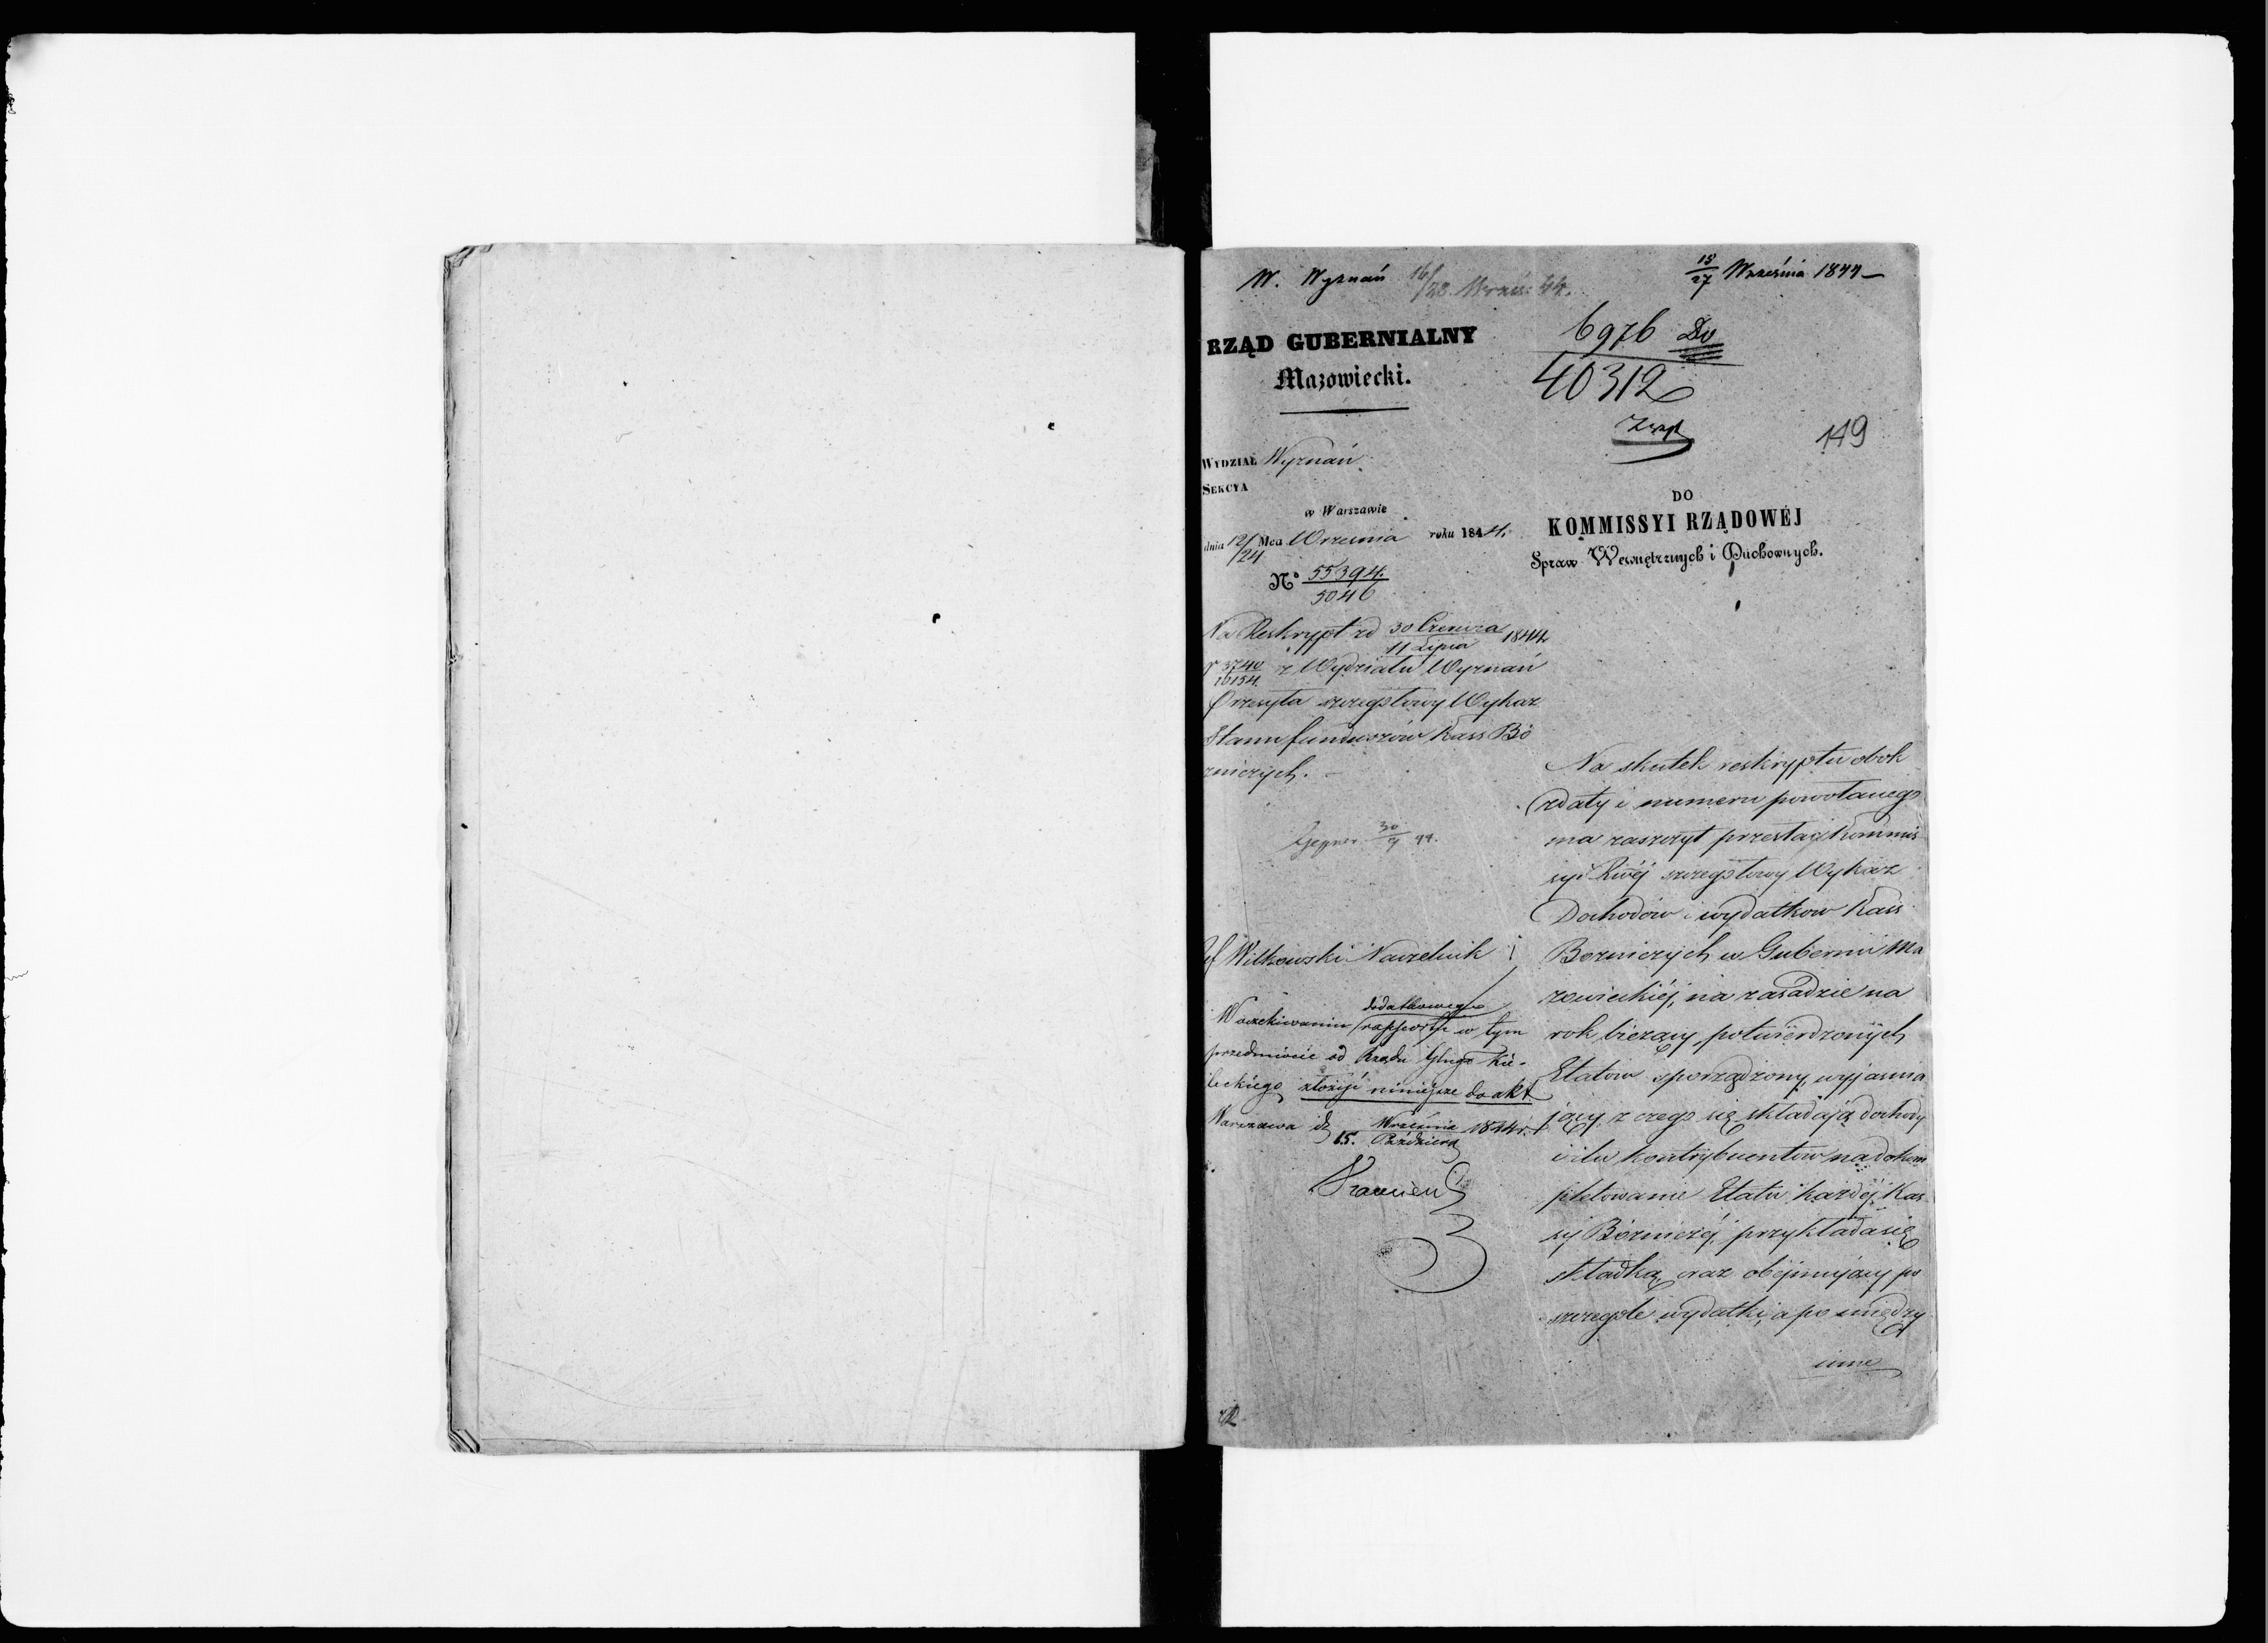 W. Wyznań 16/28 Wrześ: 44.
15/27 Września 1844 —
RZĄD GUBERNIALNY
Mazowiecki.
6976 Do
40312
149
WYDZIAŁ Wyznań.
SEKCYA
w Warszawie
dnia 12/24 Mca Września roku 1844.
N° 55394.
5046
DO
KOMMISSYI RZĄDOWÉJ
Spraw Wewnętrznych i Duchownych.
Na Reskrypt zd 30 Czerwca / 11 Lipca 1844
N 3740/16154. z Wydziału Wyznań
Przesyła szczegółowy Wykaz
Stanu funduszów Kass Bó
zniczych. —
30/9 44.
Witkowski Naczelnik
W oczekiwaniu dodatkowego rapportu w tym
przedmiocie od Rządu Gbngo Kie-
leckiego złożyć niniejsze do akt
Warszawa d 15. Września / Październ 1844 r.
Na skutek reskryptu obok
z daty i numeru powołanego
ma zaszczyt przesłać Kommis
syi Rwéj szczegółowy Wykaz
Dochodów i wydatkow Kass
Bozniczych w Gubernii Ma
zowieckiéj, na zasadzie na
rok bieżący potwierdzonych
Etatow sporządzony, wyjaśnia
jący z czego się składają dochody
i ilu kontrybuentów na dokom
pletowanie Etatu każdéj Kas
sy Bóźniczéj przykłada się
składką, oraz obejmujący po
szczególe wydatki, a po między
inne